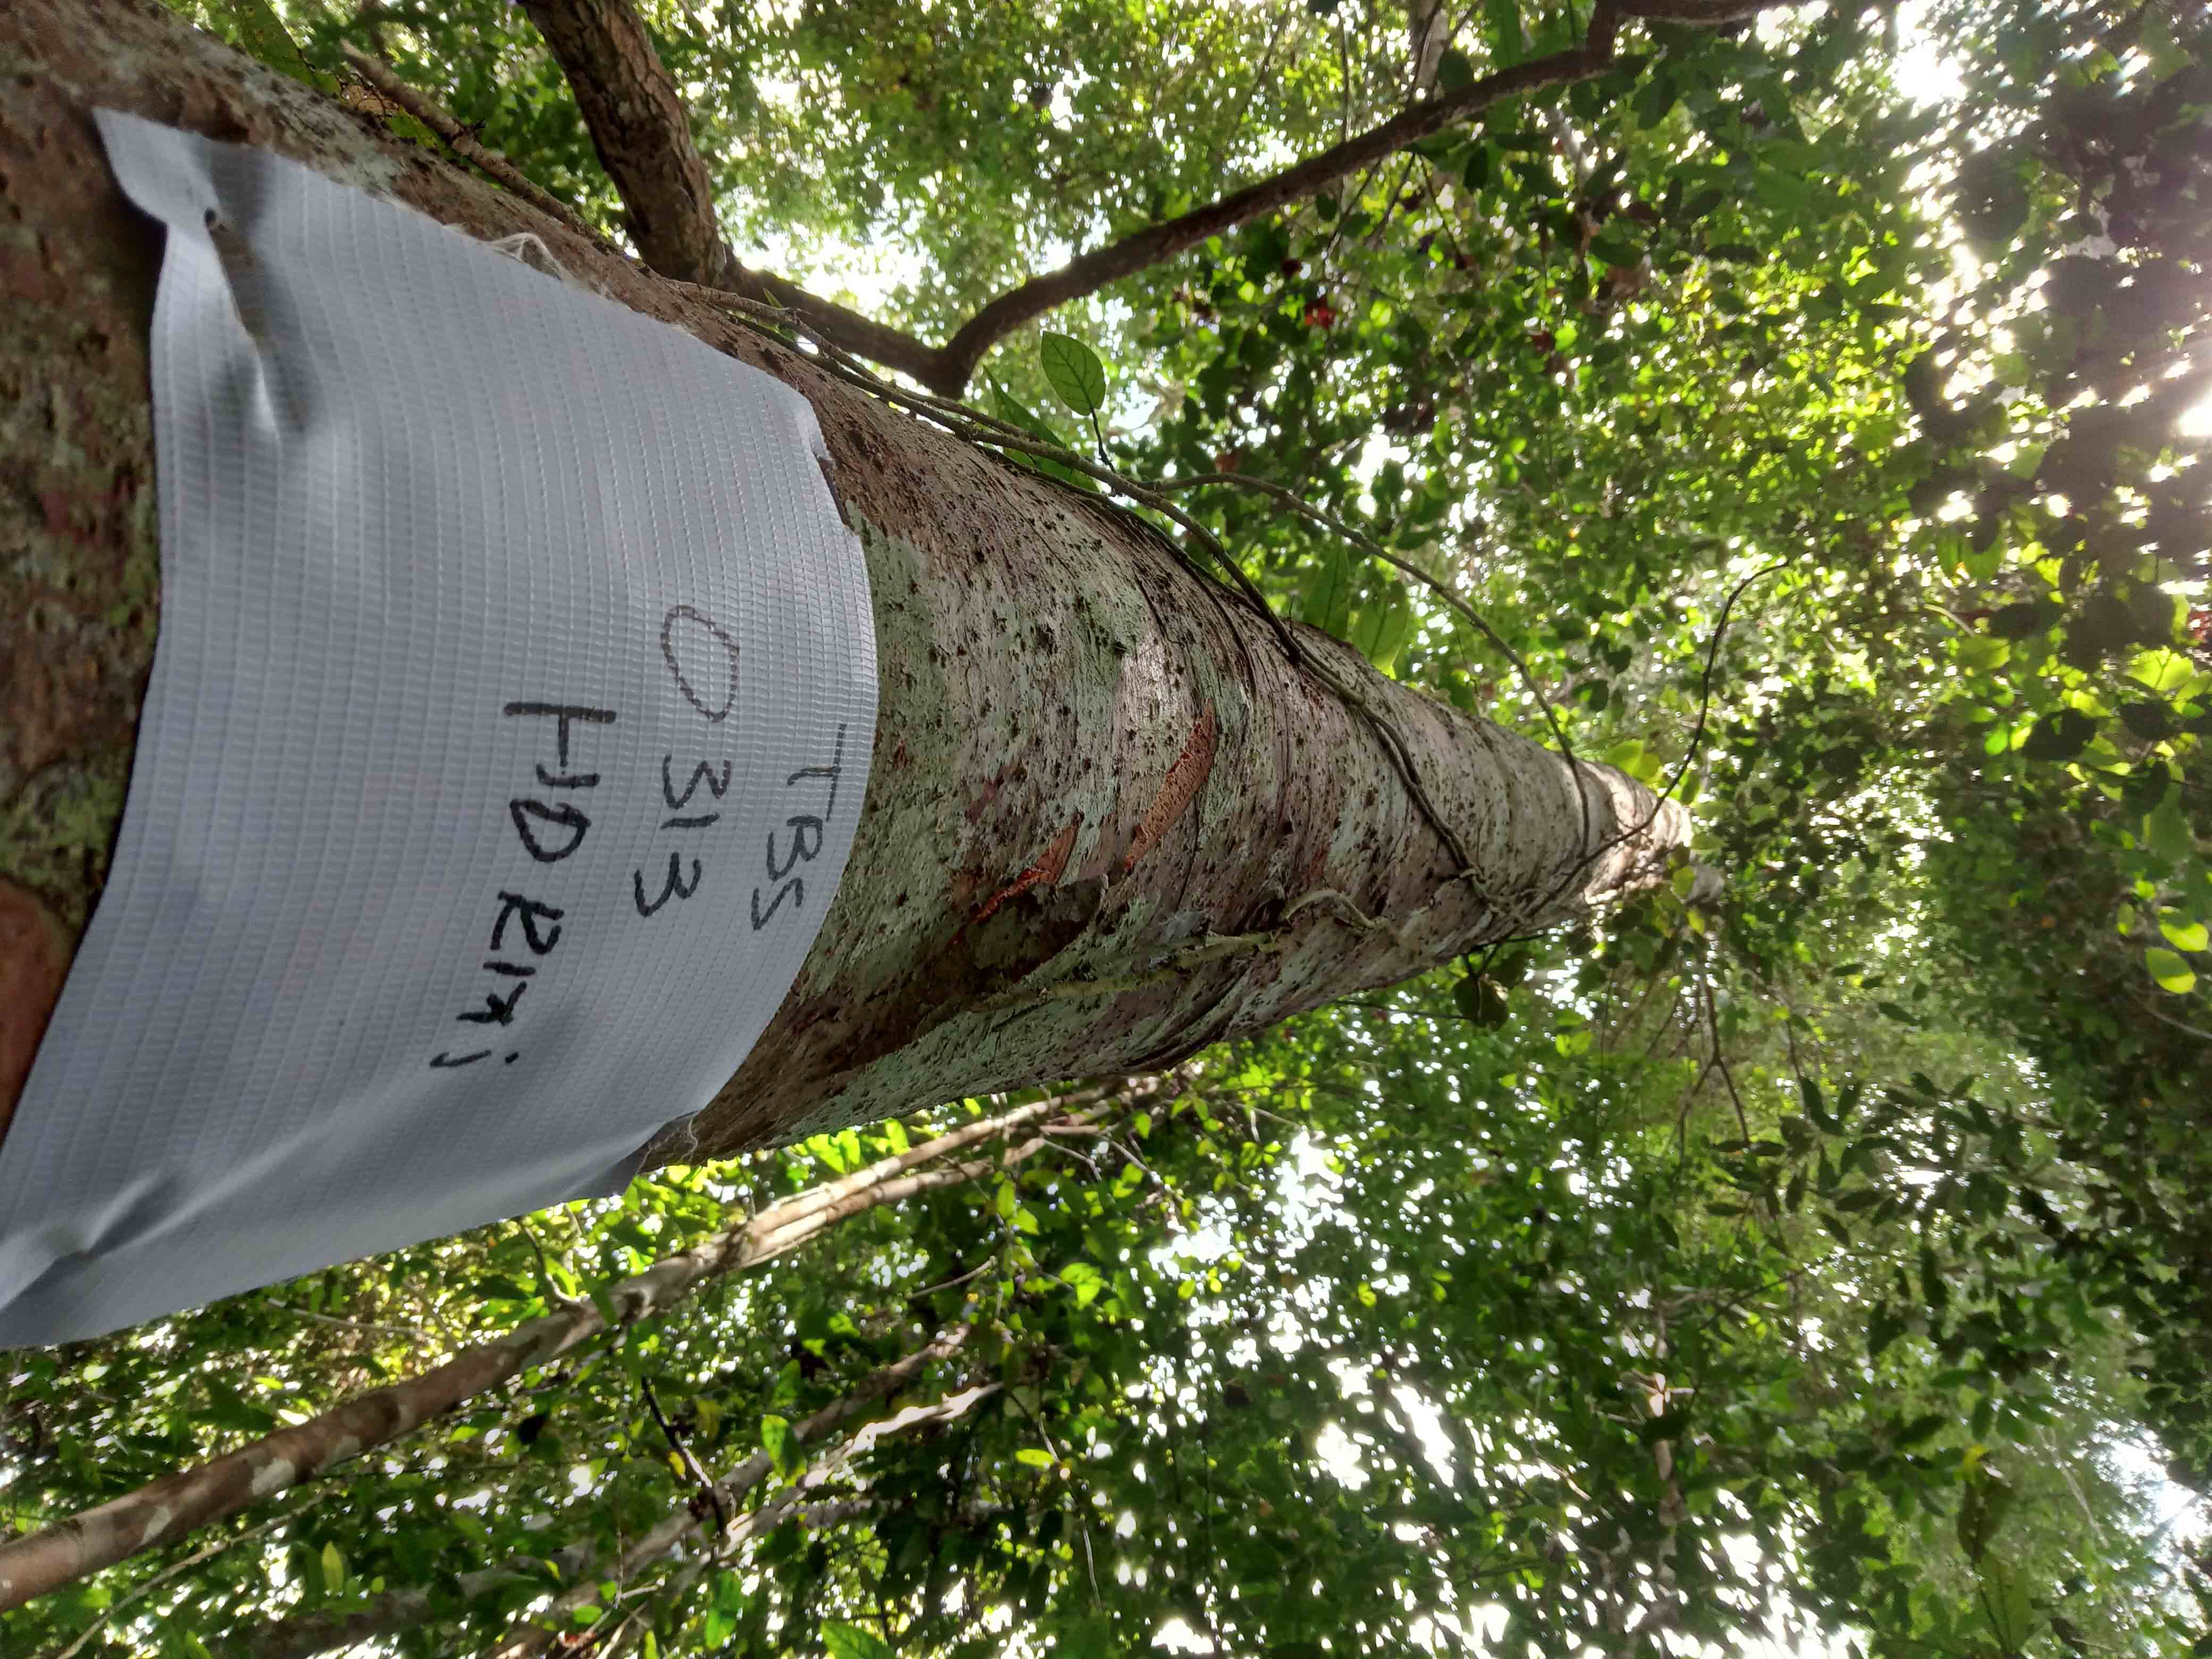 TBS
0313
HD RIMj